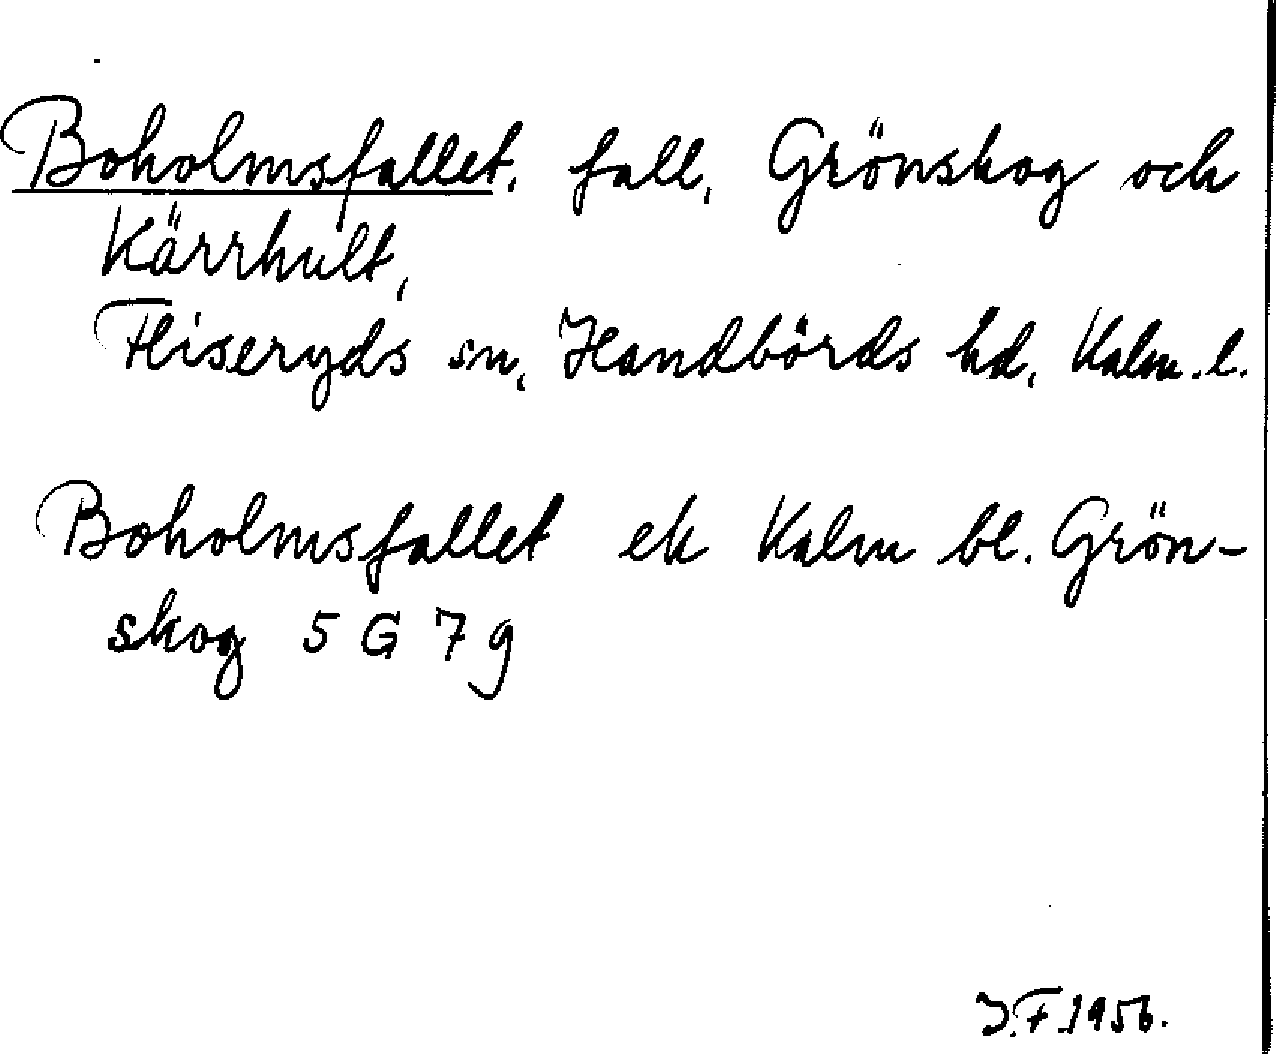 Boholmsfallet, fall, Grönskog och
Kärrhult,
Fliseryds sn, Handbörds hd, Kalm. l.
Boholmsfallet ek Kalm bl. Grön-
skog 5 G 7 g
J.F. 1956.